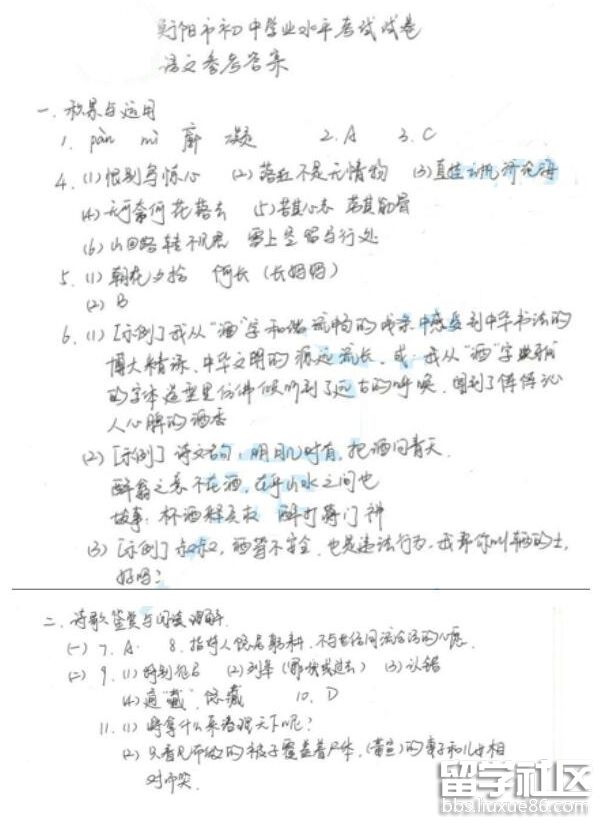 衡阳市初中学业水平考试试卷
语文参考答案
一、积累与运用
1. pàn mì 廓 凝 2. A 3. C
4. (1) 恨别鸟惊心 (2) 落红不是无情物 (3) 直挂云帆济沧海
(4) 无可奈何花落去 (5) 苦其心志 劳其筋骨
(6) 山回路转不见君 雪上空留马行处
5. (1) 朝花夕拾 阿长 (长妈妈)
(2) B
6. (1) [示例] 我从“酒”字和谐流畅的线条中感受到中华书法的
博大精深、中华文明的源远流长。或:我从“酒”字典雅
的字体造型里仿佛倾听到了远古的呼唤,闻到了阵阵沁
人心脾的酒香
(2) [示例] 诗文名句:明月几时有,把酒问青天。
醉翁之意不在酒,在乎山水之间也
故事:杯酒释兵权 醉打蒋门神
(3) [示例] 叔叔,酒驾不安全,也是违法行为,我帮你叫辆的士,
好吗?
二、诗歌鉴赏与阅读理解
(一) 7. A 8. 指诗人归居躬耕,不与世俗同流合污的心愿。
(二) 9. (1) 特别 (2) 到 (3) 认错
(4) 通“藏” 10. D
11. (1) 将拿什么来治理天下呢?
(2) 只看见布做的被子覆盖着尸体,(黄兔)的妻子和儿女相
对而哭。
留学社区
bbs.liuxue86.com